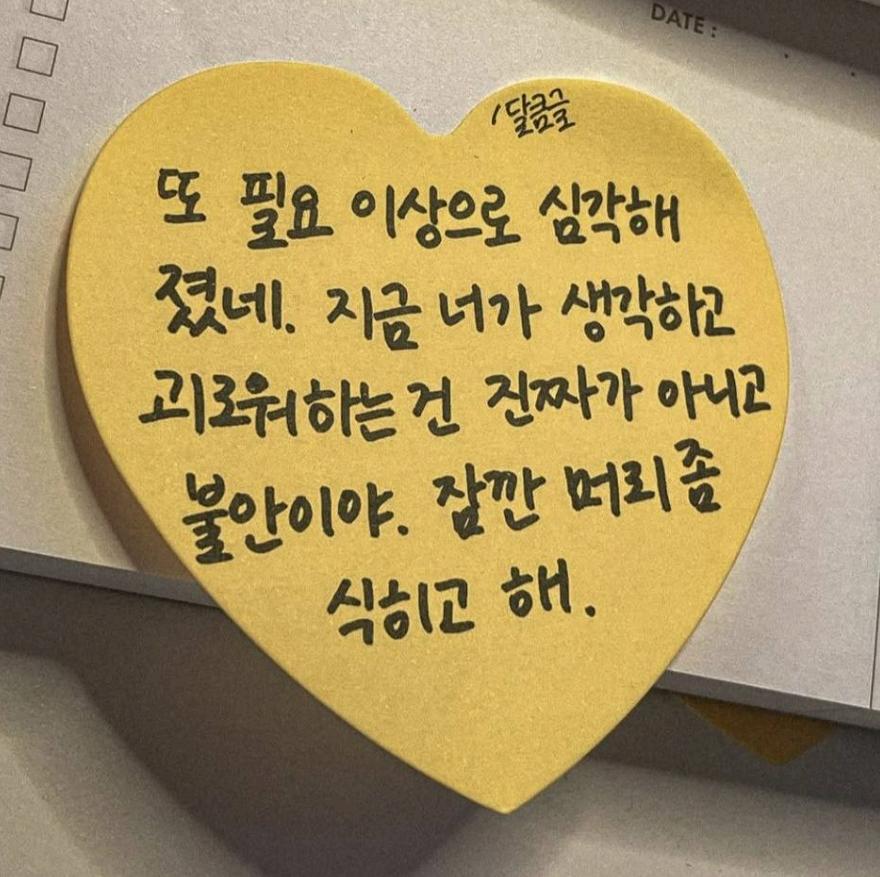 DATE :
/달큼글
또 필요 이상으로 심각해
졌네. 지금 너가 생각하고
괴로워하는건 진짜가 아니고
불안이야. 잠깐 머리 좀
식히고 해.